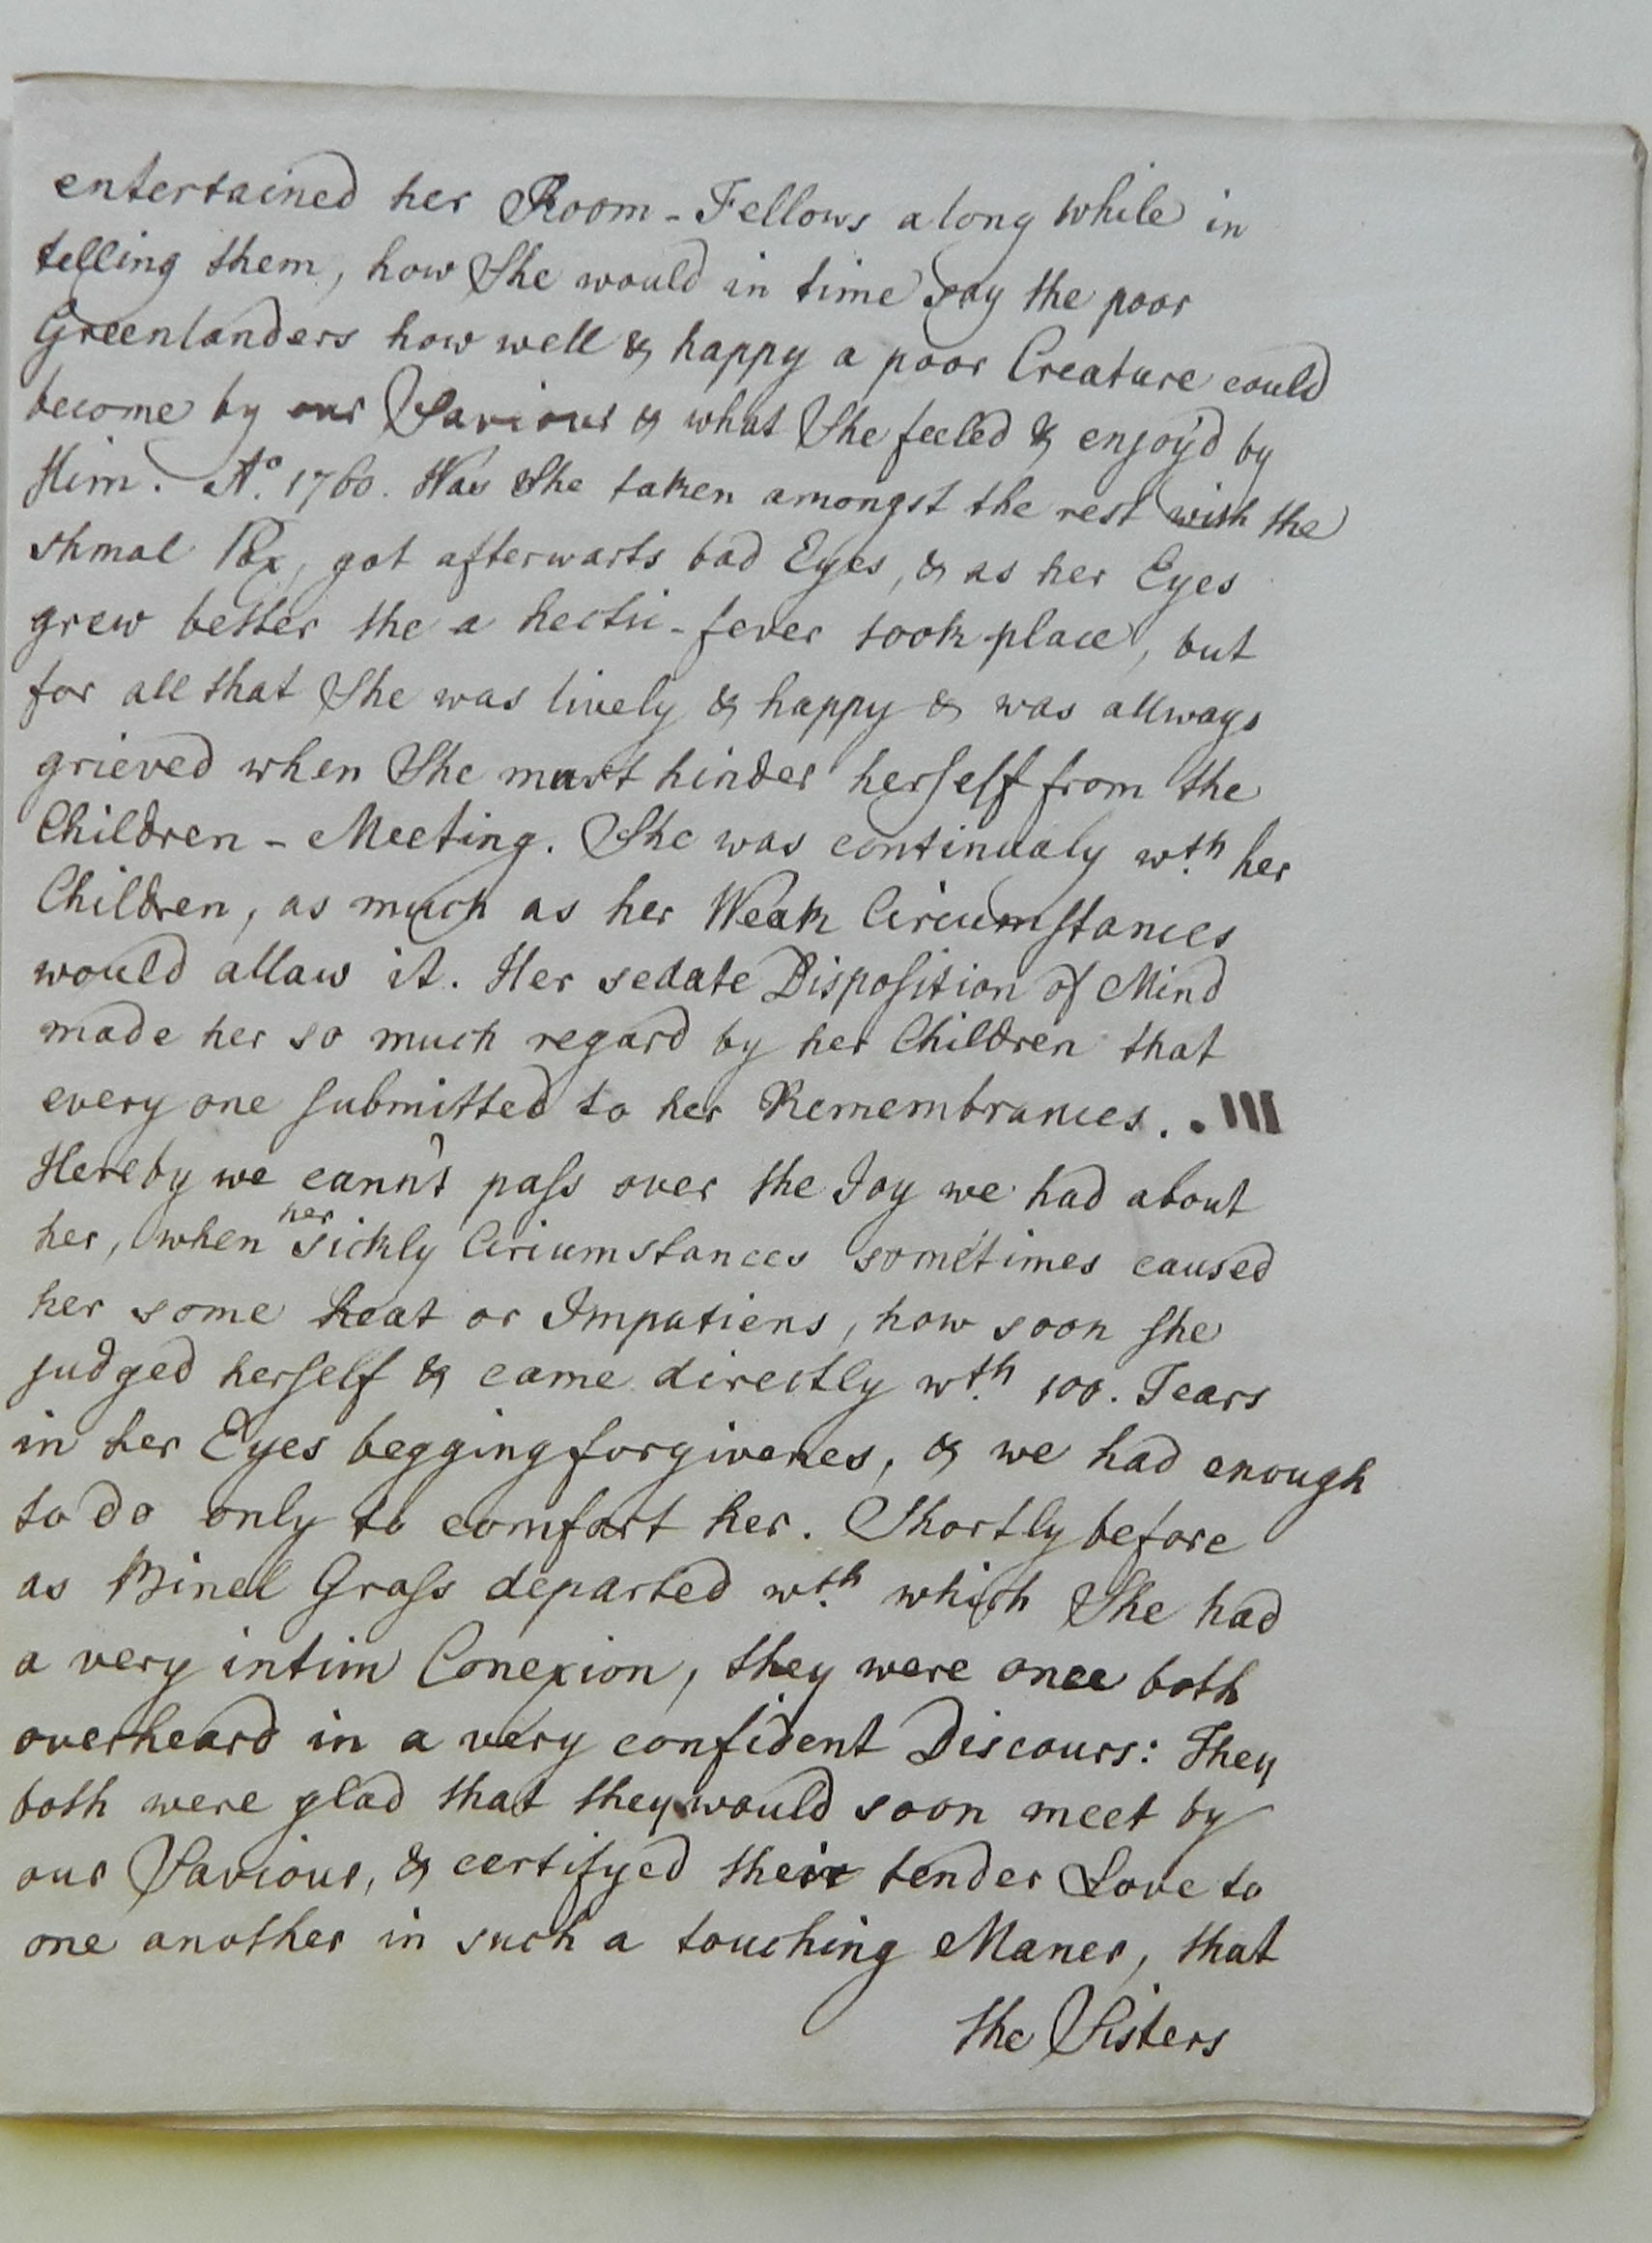 entertained her Room-Fellows a long while in
telling them, how She would in time say the poor
Greenlanders how well & happy a poor Creature could
become by our Saviour & what She feeled & enjoy'd by
Him. Aº. 1760. Was She taken amongst the rest with the
shmal Pox, got afterwarts bad Eyes, & as her Eyes
grew better the a hectic-fever took place, but
for all that She was lively & happy & was allways
grieved when She must hinder herself from the
Children-Meeting. She was continualy wth. her
Children, as much as her Weak Circumstances
would allaw it. Her sedate Disposition of Mind
made her so much regard by her Children that
every one submitted to her Remembrances.. III
Hereby we cann't pass over the Joy we had about
her, when her sickly Circumstances sometimes caused
her some heat or Impatiens, how soon she
judged herself & came directly wth. 100. Tears
in her Eyes begging forgivenes, & we had enough
to do only to comfort her. Shortly before
as Binel Grass departed wth. which She had
a very intim Conexion, they were once both
overheard in a very confident Discours: They
both were glad that they would soon meet by
our Saviour, & certifyed their tender Love to
one another in such a touching Maner, that
the Sisters